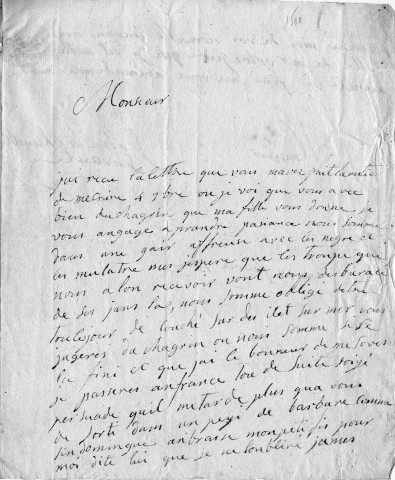 Monsieur
jai recu la lettre que vous mavez fait lamitié
de mecrire 4 9bre ou je voi que vous avec
bien du chagrin que ma fille vous donne je
vous angage a prandre pasiance nous somme
dans une gair affreuse avec les negre et
les mulatre mes jespere que les troupe que
nous alon recevoir vont nous debarace
de ses jans la, nous somme obligé detre
toulejour de couché sur des ilet sur mer vous
jugeres du chagrin ou nous somme si se
la fini et que jai le bonneur de me sover
je passeres anfrance tou de suite soiyé
persuade quil me tarde plus qua vous
de sorti dans un peyi de barbare comme
sindomingue anbrasse mon petit fis pour
moi dite lui que je ne loublire james